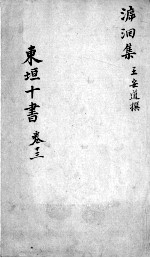 溯洄集
王安道撰
東垣十書
卷十三